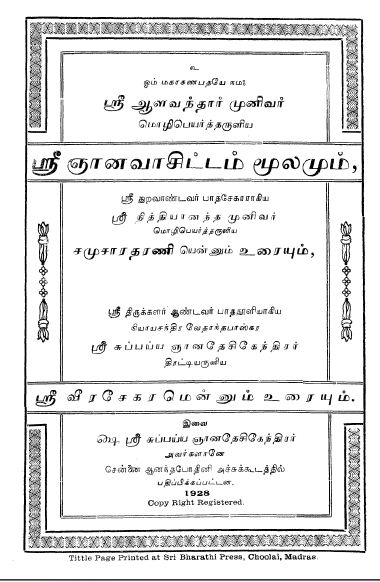 உ
ஓம் மகாகணபதயே நம:
ஸ்ரீ ஆளவந்தார் முனிவர்
மொழிபெயர்த்தருளிய
ஸ்ரீ ஞானவாசிட்டம் மூலமும்,
ஸ்ரீ துறவாண்டவர் பாதசேகரராகிய
ஸ்ரீ நித்தியானந்த முனிவர்
மொழிபெயர்த்தருளிய
சமுசாரதரணி யென்னும் உரையும்,
ஸ்ரீ திருக்களர் ஆண்டவர் பாததூளியாகிய
நியாயசந்திர வேதாந்தபாஸ்கர
ஸ்ரீ சுப்பய்ய ஞானதேசிகேந்திரர்
திரட்டியருளிய
ஸ்ரீ வீரசேகரமென்னும் உரையும்.
இவை
௸ ஸ்ரீ சுப்பய்ய ஞானதேசிகேந்திரர்
அவர்களானே
சென்னை ஆனந்தபோதினி அச்சுக்கூடத்தில்
பதிப்பிக்கப்பட்டன.
1928
Copy Right Registered.
Tittle Page Printed at Sri Bharathi Press, Choolai, Madras.